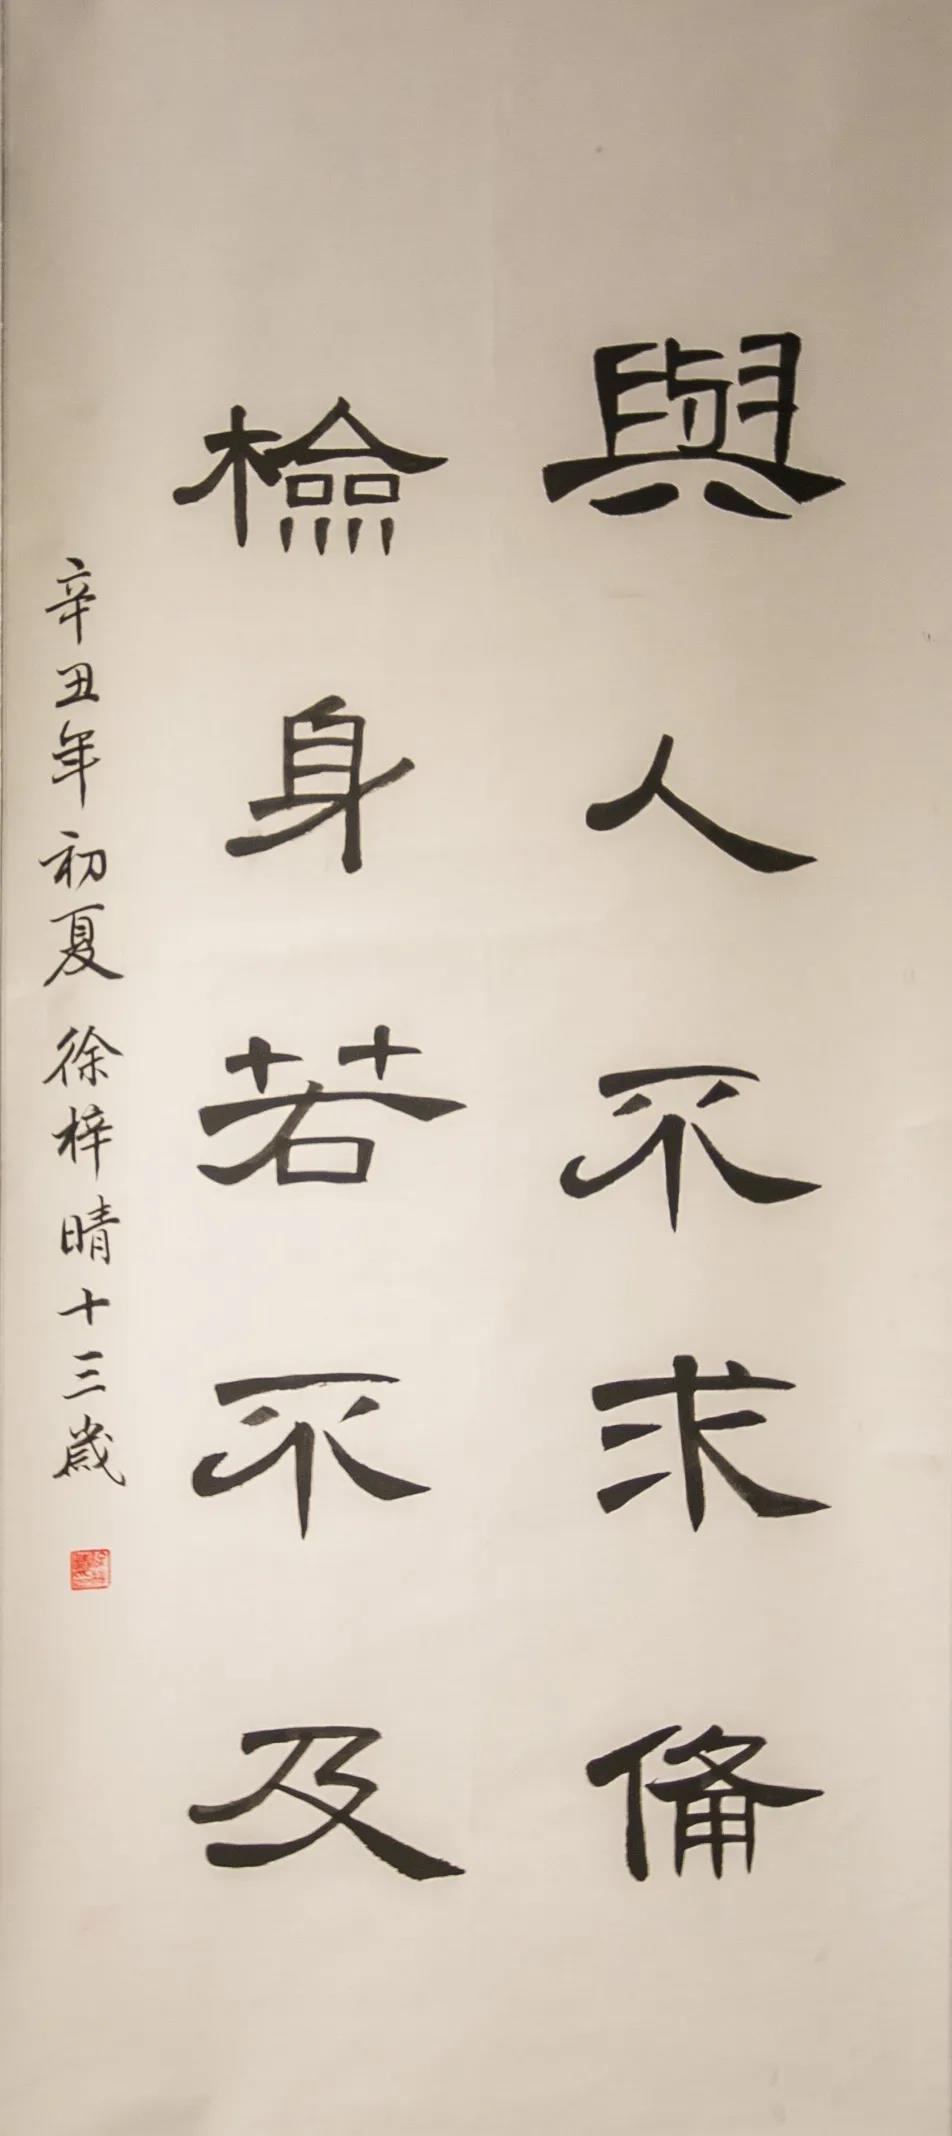 與人不求備
檢身若不及
辛丑年初夏徐梓晴十三歲